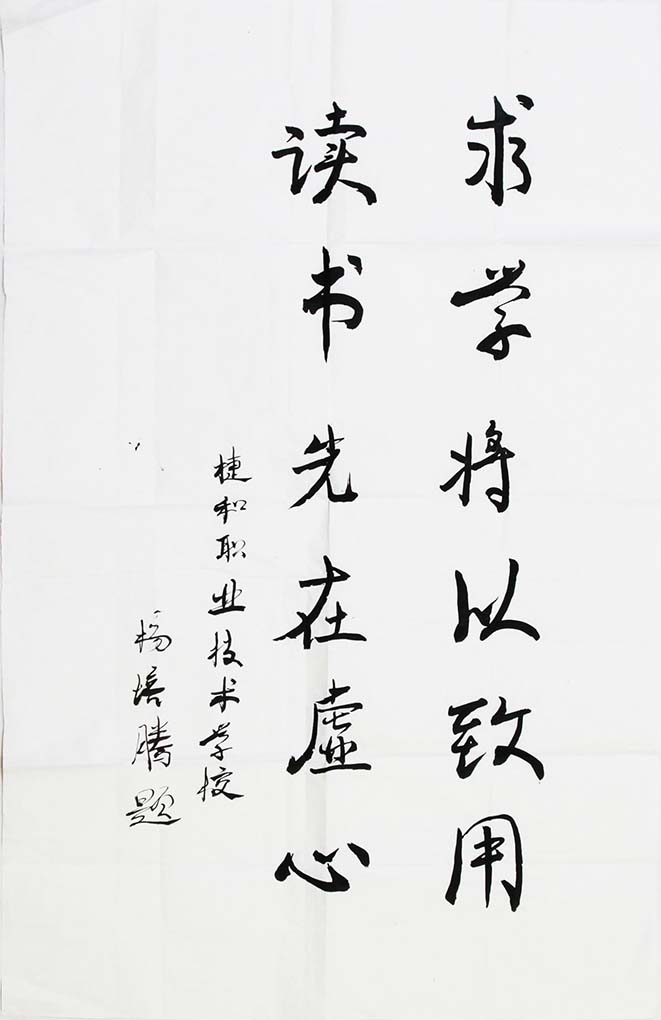 求学将以致用
读书先在虚心
捷和职业技术学校
杨培腾题